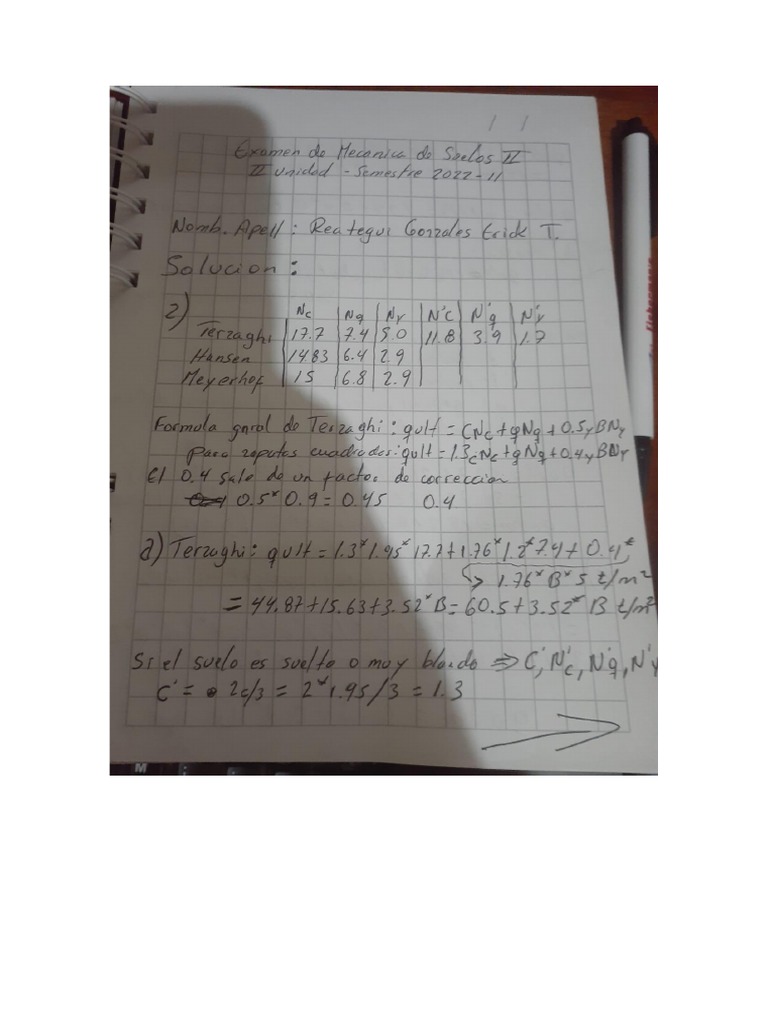 Examen de Mecanica de Suelos II
II unidad - Semestre 2022-II
Nomb. Apell: Reategui Gonzales Erick T.
Solucion:
2)
Nc Nq Nγ N'c N'q N'γ
Terzaghi 17.7 7.4 5.0 11.8 3.9 1.7
Hansen 14.83 6.4 2.9
Meyerhof 15 6.8 2.9
Formula gnral de Terzaghi: qult = CNc + qNq + 0.5γBNγ
para zapatas cuadradas: qult = 1.3cNc + qNq + 0.4γBNγ
El 0.4 sale de un factor de correccion
0.5*0.9 = 0.45 0.4
a) Terzaghi: qult = 1.3*1.95*17.7+1.76*1.2*7.4+0.4*
1.76*B*5 t/m²
= 44.87+15.63+3.52*B = 60.5+3.52*B t/m²
Si el suelo es suelto o muy blando ⇒ C', N'c, N'q, N'γ
C' = 2c/3 = 2*1.95/3 = 1.3
M